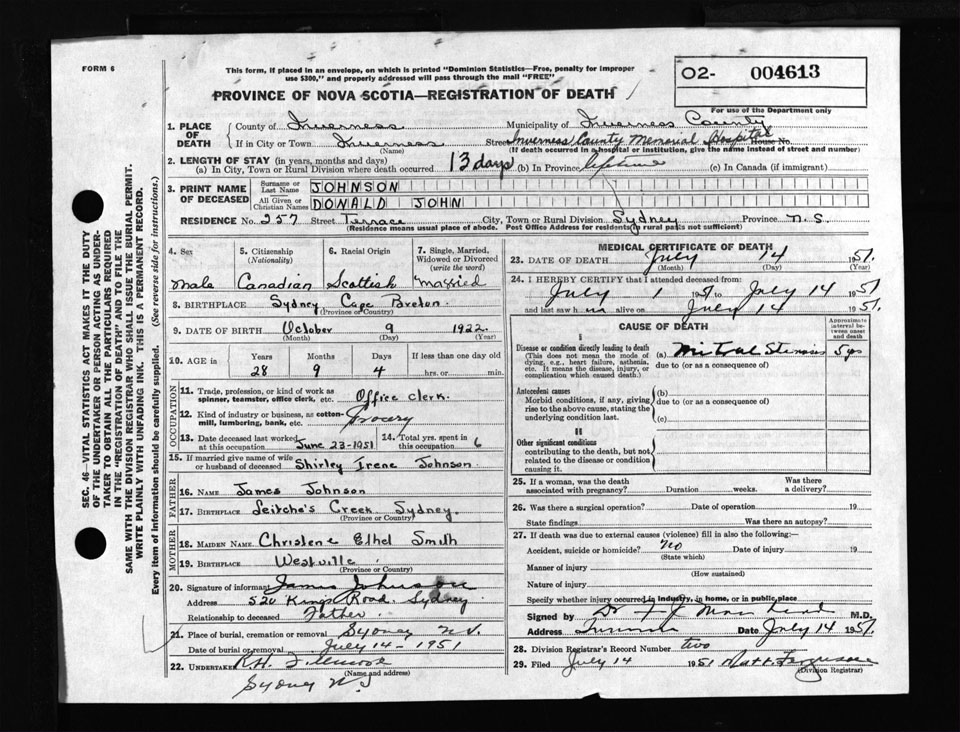 FORM 6
This form, if placed in an envelope, on which is printed "Dominion Statistics—Free, penalty for improper
use $300," and properly addressed will pass through the mail "FREE"
PROVINCE OF NOVA SCOTIA—REGISTRATION OF DEATH
02- 004613
For use of the Department only
SEC. 46—VITAL STATISTICS ACT MAKES IT THE DUTY
OF THE UNDERTAKER OR PERSON ACTING AS UNDER-
TAKER TO OBTAIN ALL THE PARTICULARS REQUIRED
IN THE "REGISTRATION OF DEATH" AND TO FILE THE
SAME WITH THE DIVISION REGISTRAR WHO SHALL ISSUE THE BURIAL PERMIT.
WRITE PLAINLY WITH UNFADING INK. THIS IS A PERMANENT RECORD.
Every item of Information should be carefully supplied. (See reverse side for instructions.)
1. PLACE OF DEATH County of Inverness Municipality of Inverness County
If in City or Town Inverness Street Inverness County Memorial Hospital House No.
(Name) (If death occurred in a hospital or institution, give the name instead of street and number)
2. LENGTH OF STAY (in years, months and days)
(a) In City, Town or Rural Division where death occurred 13 days (b) In Province lifetime (c) In Canada (if immigrant)
3. PRINT NAME OF DECEASED Surname or Last Name JOHNSON
All Given or Christian Names DONALD JOHN
RESIDENCE No. 257 Street Terrace City, Town or Rural Division Sydney Province N.S.
(Residence means usual place of abode. Post Office Address for residents of rural parts not sufficient)
4. Sex 5. Citizenship (Nationality) 6. Racial Origin 7. Single, Married, Widowed or Divorced (write the word)
Male Canadian Scottish Married
8. BIRTHPLACE Sydney Cape Breton
(Province or Country)
9. DATE OF BIRTH October 9 1922
(Month) (Day) (Year)
10. AGE in Years Months Days If less than one day old
28 9 4 hrs. or min.
OCCUPATION
11. Trade, profession, or kind of work as
spinner, teamster, office clerk, etc. Office Clerk
12. Kind of industry or business, as cotton-
mill, lumbering, bank, etc. Grocery
13. Date deceased last worked at this occupation June 23-1951 14. Total yrs. spent in this occupation 6
15. If married give name of wife
or husband of deceased Shirley Irene Johnson
FATHER
16. NAME James Johnson
17. BIRTHPLACE Leitche's Creek Sydney.
(Province or Country)
MOTHER
18. MAIDEN NAME Christene Ethel Smith
19. BIRTHPLACE Westville
(Province or Country)
20. Signature of informant James Johnson
Address 520 Kings Road Sydney
Relationship to deceased Father
21. Place of burial, cremation or removal Sydney N.S.
Date of burial or removal July 14 - 1951
22. UNDERTAKER R.H.
(Name and address)
Sydney N.S
MEDICAL CERTIFICATE OF DEATH
23. DATE OF DEATH July 14 1951
(Month) (Day) (Year)
24. I HEREBY CERTIFY that I attended deceased from
July 1 1951 to July 14 1951
and last saw h alive on July 14 1951
CAUSE OF DEATH
Approximate interval between onset and death
I
Disease or condition directly leading to death
(This does not mean the mode of
dying, e.g., heart failure, asthenia,
etc. It means the disease, injury, or
complication which caused death.)
(a) Mitral Stenosis 5 yrs
due to (or as a consequence of)
Antecedent causes
Morbid conditions, if any, giving
rise to the above cause, stating the
underlying condition last.
(b)
due to (or as a consequence of)
(c)
II
Other significant conditions
contributing to the death, but not
related to the disease or condition
causing it.
25. If a woman, was the death
associated with pregnancy? Duration weeks. Was there a delivery?
26. Was there a surgical operation? Date of operation 19
State findings Was there an autopsy?
27. If death was due to external causes (violence) fill in also the following:
Accident, suicide or homicide? No Date of injury 19
(State which)
Manner of injury
(How sustained)
Nature of injury
Specify whether injury occurred in industry, in home, or in public place
Signed by Dr M.D.
Address Inverness Date July 14 1951
28. Division Registrar's Record Number two
29. Filed July 14 1951 Matt Ferguson
(Division Registrar)